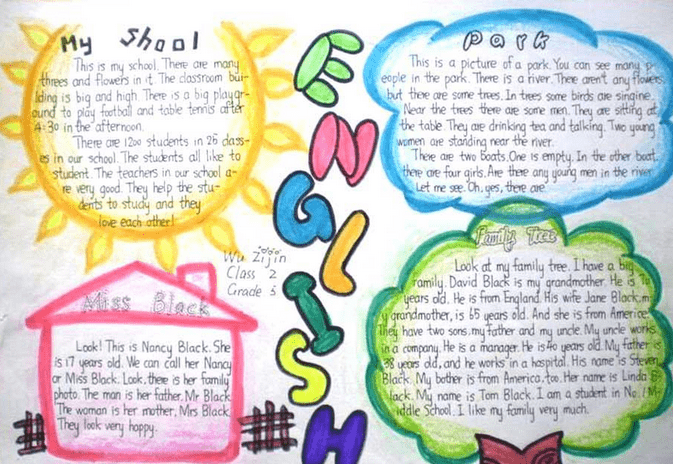 My Shool
This is my school. There are many
threes and flowers in it. The classroom bui-
lding is big and high. There is a big playgr-
ound to play football and table tennis after
4:30 in the afternoon.
There are 1200 students in 25 class-
es in our school. The students all like to
student. The teachers in our school a-
re very good. They help the stu-
dents to study and they
love each other!
ENGLISH
Park
This is a picture of a park. You can see many p-
eople in the park. There is a river. There aren't any flowers,
but there are some trees. In trees some birds are singine.
Near the trees there are some men. They are sitting at
the table. They are drinking tea and talking. Two young
women are standing near the river.
There are two boats. One is empty. In the other boat
there are four girls. Are there any young men in the river
Let me see. Oh, yes, there are
Wu Zijin
Class 2
Grade 3
Miss Black
Look! This is Nancy Black. She
is 17 years old. We can call her Nancy
or Miss Black. Look, there is her family
photo. The man is her father, Mr Black
The woman is her mother, Mrs Black.
They look very happy.
Family Tree
Look at my family tree. I have a big
family. David Black is my grandmother. He is
years old. He is from England. His wife Jane Black, m
y grandmother, is 65 years old. And she is from America.
They have two sons, my father and my uncle. My uncle works
in a company. He is a manager. He is 40 years old. My father is
38 years old, and he works in a hospital. His name is Steven
Black. My bother is from America, too. Her name is Linda B-
lack. My name is Tom Black. I am a student in No.1 M-
iddle School. I like my family very much.